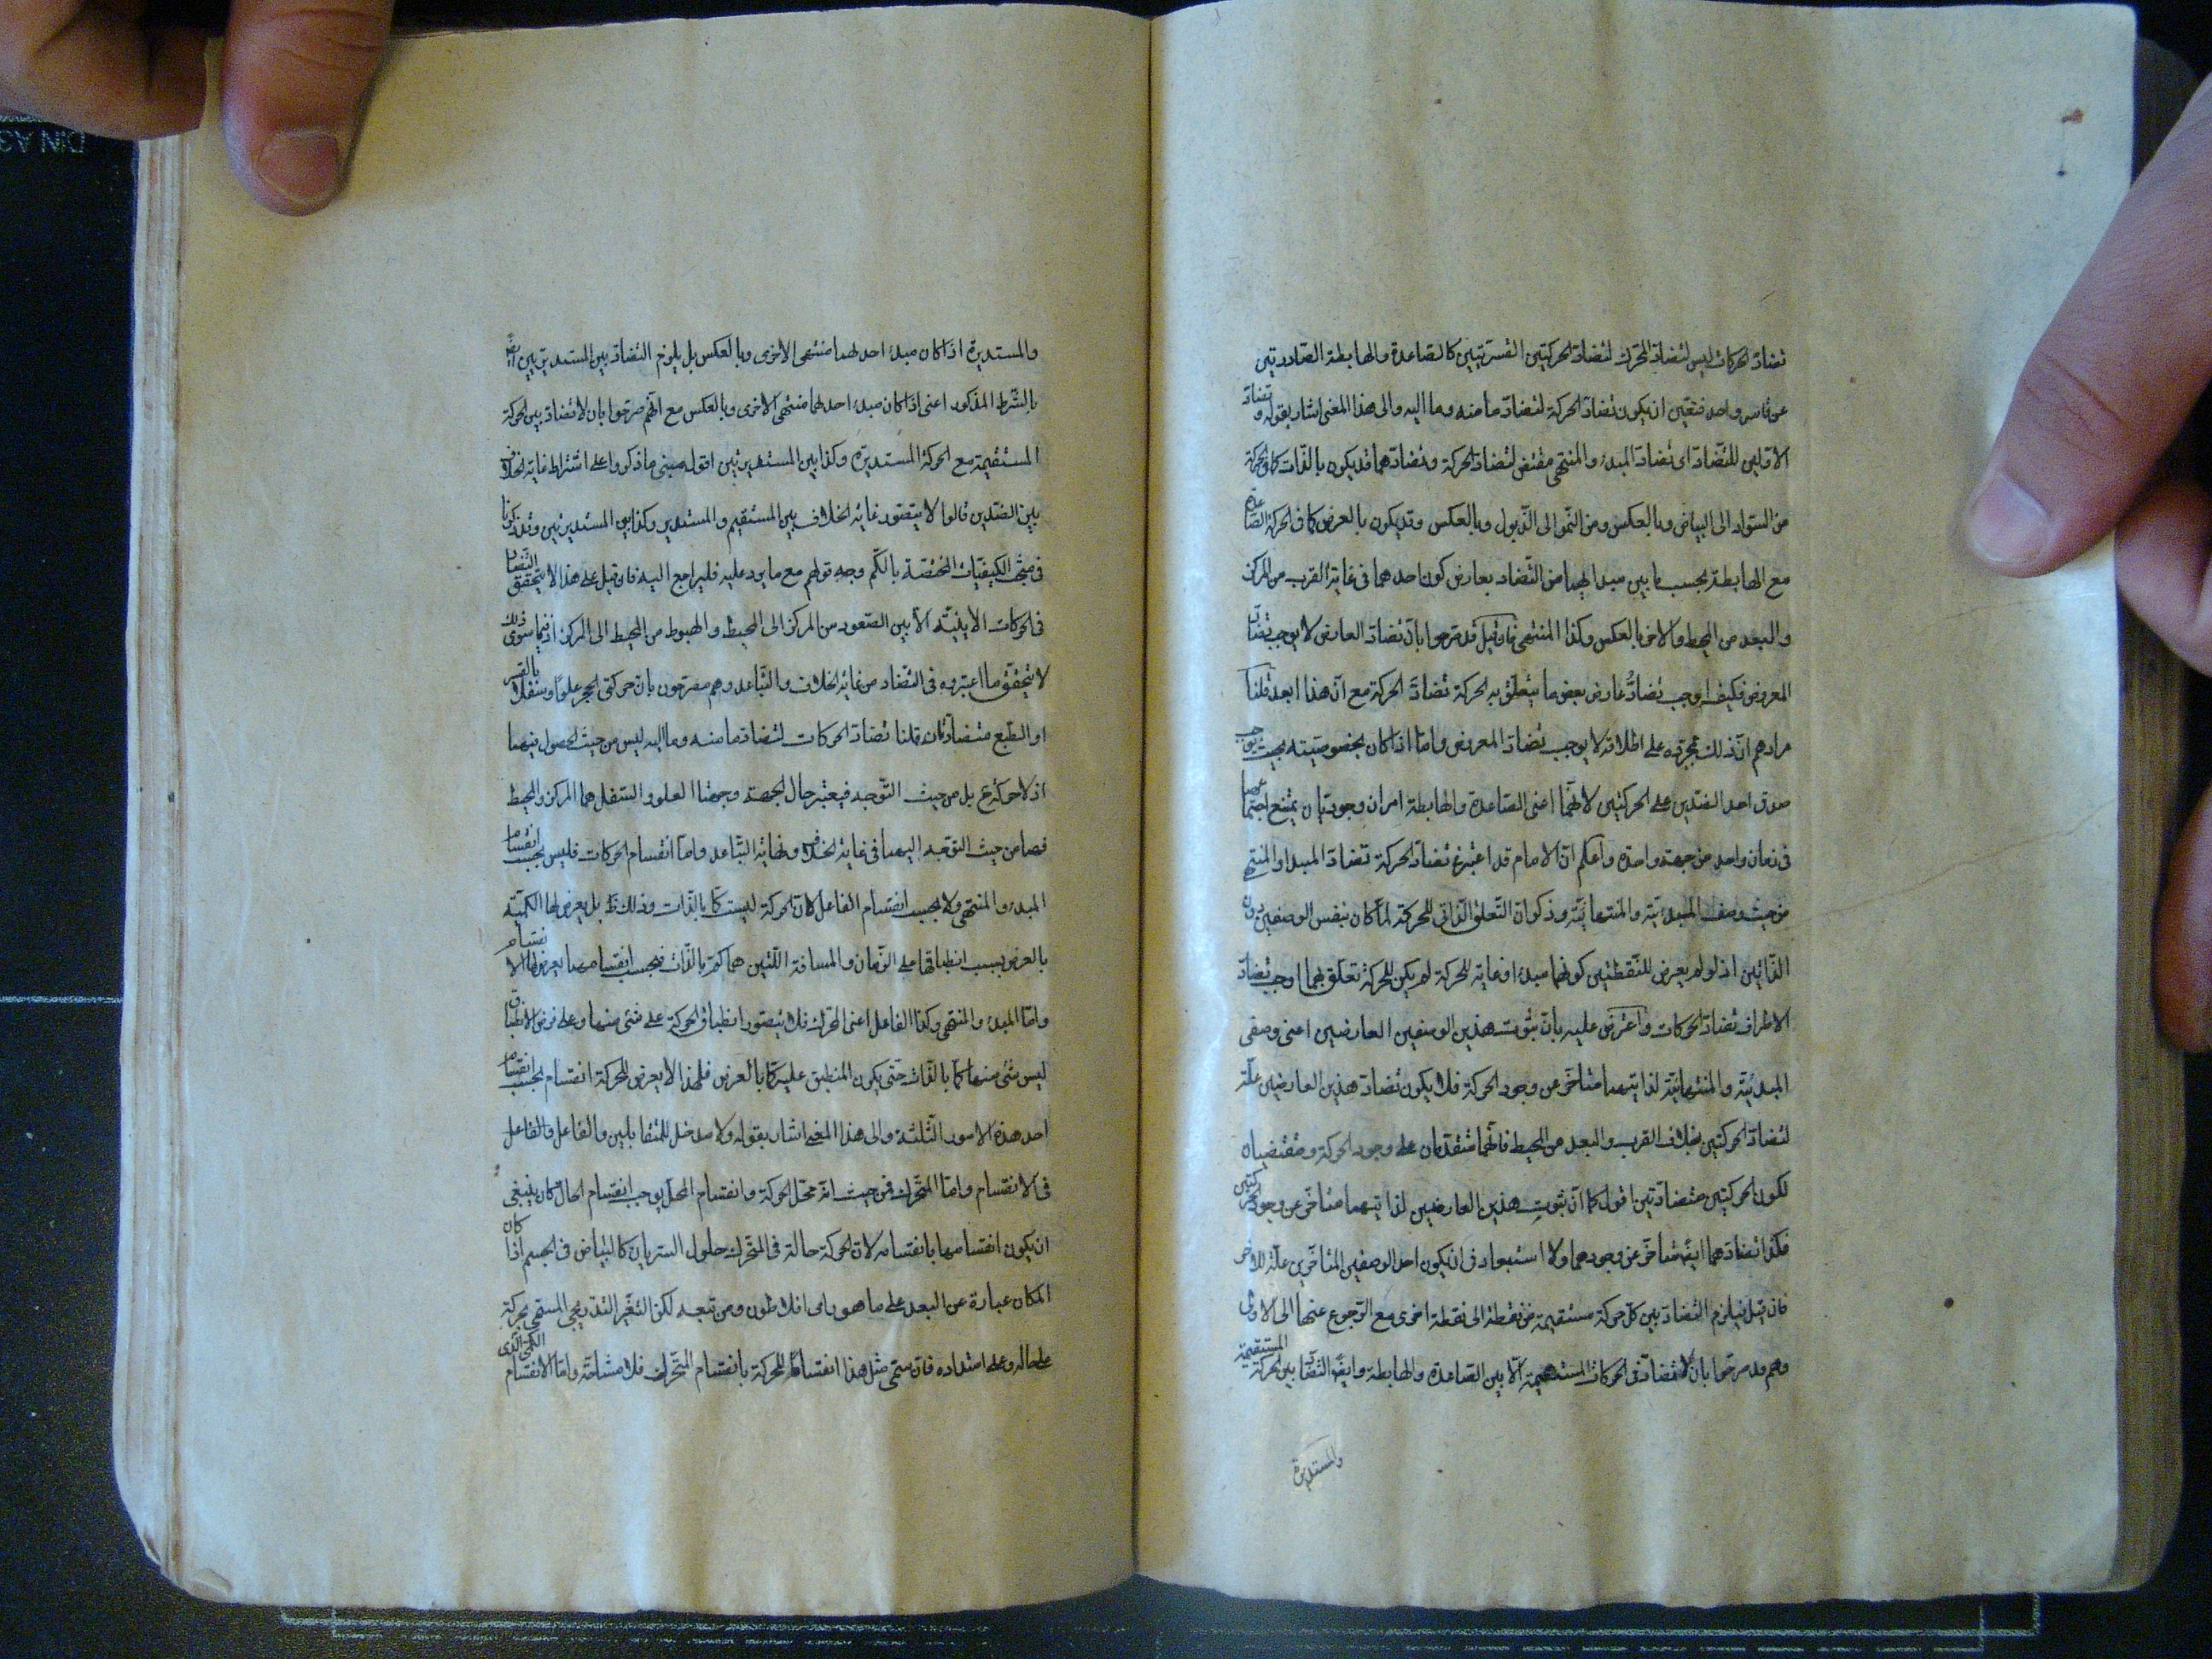 تضاد الحركات ليس لتضاد المحرك لتضاد الحركتين القسريتين كالصاعدة والهابطة الصادرتين
عن قاسر واحد فتعين ان يكون تضاد الحركة لتضاد ما منه وما اليه والى هذا المعنى اشار بقوله و تضاد
الاولين للتضاد اى تضاد المبدء والمنتهى مقتض لتضاد الحركة وتضادهما قد يكون بالذات كالحركة
من السواد الى البياض وبالعكس ومن النمو الى الذبول وبالعكس وقد يكون بالعرض كما فى الحركة الصاعدة
مع الهابطة بحسب ما بين مبدايهما من التضاد بعارض كون احدهما فى غاية القرب من المركز
والبعد من المحيط والاخر بالعكس وكذا المنتهى فان قيل قد صرحوا بان تضاد العارض لا يوجب تضاد
المعروض فكيف يوجب تضاد عارض بعض ما يتعلق به الحركة تضاد الحركة مع ان هذا ابعد قلنا
مرادهم ان ذلك بمجرده على اطلاقه لا يوجب تضاد المعروض واما اذا كان بخصوصيته بحيث يوجب
صدق احد الضدين على الحركتين لانهما اعنى الصاعدة والهابطة امران وجوديان يمتنع اجتماعهما
فى زمان واحد من جهة واحدة واعلم ان الامام قد اعتبر فى تضاد الحركة تضاد المبدا والمنتهى
من حيث وصف المبدئية والمنتهائية وذكر ان التعلق الذاتى للحركة لما كان بنفس الوصفين دون
الذاتين اذ لو لم يعرض للنقطتين كونهما مبدء او غاية للحركة لم يكن للحركة تعلق بهما اوجب تضاد
الاطراف تضاد الحركات واعترض عليه بان ثبوت هذين الوصفين العارضين اعنى وصفى
المبدئية والمنتهائية لذاتيهما متاخر عن وجود الحركة فلا يكون تضاد هذين العارضين علة
لتضاد الحركتين بخلاف القرب والبعد من المحيط فانهما متقدمان على وجود الحركة ومقتضيان
لكون الحركتين متضادتين اقول كما ان ثبوت هذين العارضين لذاتيهما متاخر عن وجود الحركتين
فكذا تضادهما ايضا متاخر عن وجودهما ولا استبعاد فى ان يكون احد الوصفين المتاخرين علة للاخر
فان قيل فيلزم التضاد بين كل حركة مستقيمة من نقطة الى نقطة اخرى مع الرجوع عنها الى الاولى
وهم قد صرحوا بان لا تضاد فى الحركات المستقيمة الا بين الصاعدة والهابطة وايضا التضاد بين الحركة المستقيمة
والمستديرة
والمستديرة اذا كان مبدء احدهما منتهى الاخرى وبالعكس بل يلزم التضاد بين المستديرتين ايضا
بالشرط المذكور اعنى اذا كان مبدء احدهما منتهى الاخرى وبالعكس مع انهم صرحوا بان لا تضاد بين الحركة
المستقيمة مع الحركة المستديرة وكذا بين المستديرتين اقول مبنى ما ذكروا على اشتراط غاية الخلاف
بين الضدين قالوا لا يتصور غاية الخلاف بين المستقيم والمستدير وكذا بين المستديرتين وقد ذكرنا
فى مبحث الكيفيات المختصة بالكم وجه قولهم مع ما يرد عليه فليراجع اليه فان قيل على هذا لا يتحقق التضاد
فى الحركات الاينية الا بين الصعود من المركز الى المحيط والهبوط من المحيط الى المركز اذ فيما سوى ذلك
لا يتحقق ما اعتبروه فى التضاد من غاية الخلاف والتباعد وهم مصرحون بان حركتى الحجر علوا وسفلا بالقسر
او الطبع متضادتان قلنا تضاد الحركات لتضاد ما منه وما اليه ليس من حيث الحصول فيهما
اذ لا حركة ح بل من حيث التوجه فيعتبر حال الجهة وجهتا العلو والسفل هما المركز والمحيط
فهما من حيث التوجه اليهما فى غاية الخلاف ونهاية التباعد واما انقسام الحركات فليس بحسب انقسام
المبدء والمنتهى ولا بحسب انقسام الفاعل لان الحركة ليست كما بالذات وذلك ظ بل يعرض لها الكمية
بالعرض بسبب انطباقها على الزمان والمسافة اللتين هما كم بالذات فبحسب انقسامهما يعرض لها الانقسام
واما المبدء والمنتهى وكذا الفاعل اعنى المحرك فلا يتصور انطباق الحركة على شئ منها وعلى فرض الانطباق
ليس شئ منها كما بالذات حتى يكون المنطبق عليه كما بالعرض فلهذا لا يعرض للحركة انقسام بحسب انقسام
احد هذه الامور الثلثة والى هذا المعنى اشار بقوله ولا مدخل للمتقابلين والفاعل والفاعل
فى الانقسام واما المتحرك فمن حيث انه محل الحركة وانقسام المحل يوجب انقسام الحال كان ينبغى
ان يكون انقسامها بانقسامه لان الحركة حالة فى المتحرك حلول السريان كالبياض فى الجسم اذا كان
المكان عبارة عن البعد على ما هو راى افلاطون ومن تبعه لكن التغير التدريجى المسمى بحركة
على حاله وعلى امتداده فان سمى مثل هذا انقساما للحركة بانقسام المتحرك فلا مشاحة واما الانقسام الكمى الذى